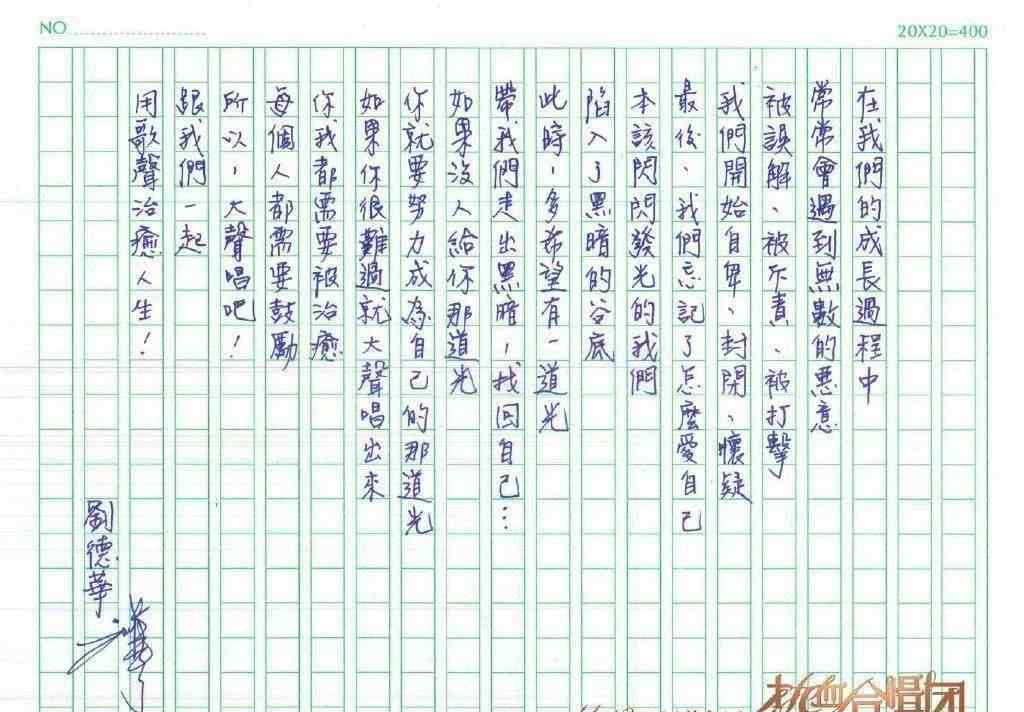 NO
20X20=400
在我們的成長過程中
常常會遇到無數的惡意
被誤解、被斥責、被打擊
我們開始自卑、封閉、懷疑
最後、我們忘記了怎麼愛自己
本該閃閃發光的我們
陷入了黑暗的谷底
此時，多希望有一道光
帶我們走出黑暗，找回自己…
如果沒人給你那道光
你就要努力成為自己的那道光
如果你很難過就大聲唱出來
你我都需要被治癒
每個人都需要鼓勵
所以，大聲唱吧！
跟我們一起
用歌聲治癒人生！
劉德華
热血合唱团